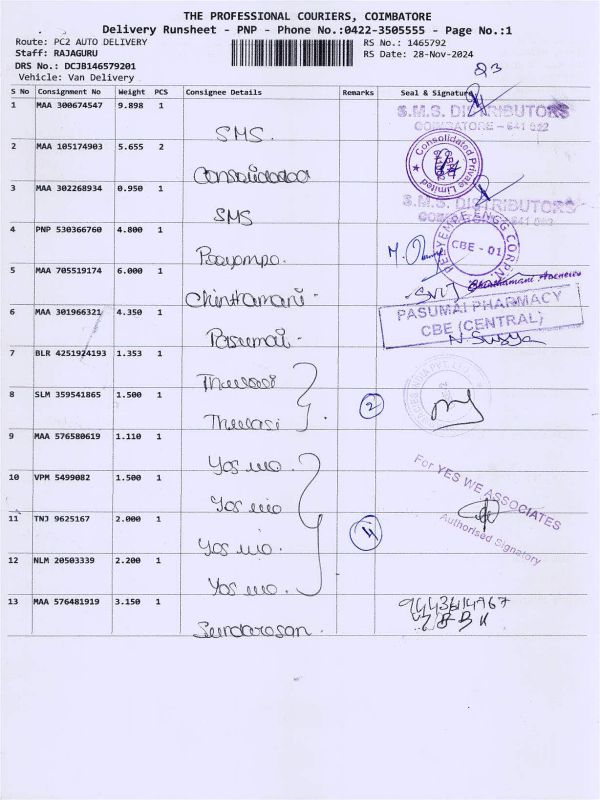 THE PROFESSIONAL COURIERS, COIMBATORE
Delivery Runsheet - PNP - Phone No.:0422-3505555 - Page No.:1
Route: PC2 AUTO DELIVERY
RS No.: 1465792
Staff: RAJAGURU
RS Date: 28-Nov-2024
DRS No.: DCJB146579201
Vehicle: Van Delivery
S No Consignment No Weight PCS Consignee Details Remarks Seal & Signature
1 MAA 300674547 9.898 1
SMS.
S.M.S. DISTRIBUTORS
COIMBATORE - 641
2 MAA 105174903 5.655 2
Consolidated Private Limited
3 MAA 302268934 0.950 1
SMS
S.M.S. DISTRIBUTORS
4 PNP 530366760 4.800 1
ENGG CORPN
CBE - 01
5 MAA 705519174 6.000 1
Chinthamani
6 MAA 301966321 4.350 1
Pasumai
PASUMAI PHARMACY
CBE (CENTRAL)
N. Surya
7 BLR 4251924193 1.353 1
8 SLM 359541865 1.500 1
2
9 MAA 576580619 1.110 1
10 VPM 5499082 1.500 1
For YES WE ASSOCIATES
Authorised Signatory
11 TNJ 9625167 2.000 1
4
12 NLM 20503339 2.200 1
13 MAA 576481919 3.150 1
Sundarasan.